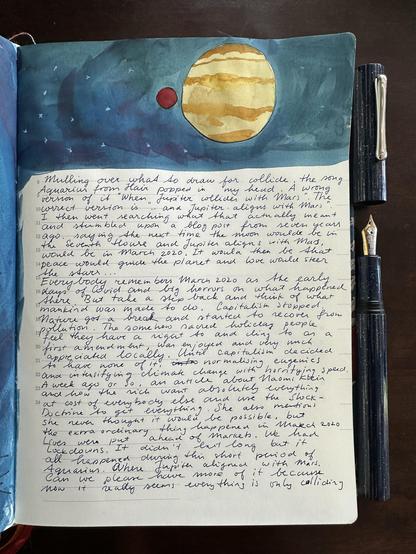 Mulling over what to draw for collide, the song
Aquarius from Hair popped in my head. A wrong
version of it "When Jupiter collides with Mars". The
correct version is - and Jupiter aligns with Mars.
I then went searching what that actually meant
and stumbled upon a blog post from seven years
ago saying the next time the moon would be in
the Seventh House and Jupiter aligns with Mars,
would be in March 2020. It would then be that
peace would guide the planet and love would steer
the stars...
Everybody remembers March 2020 as the early
days of Covid and big horrors on what happened
there. But take a step back and think of what
mankind was made to do. Capitalism stopped
Nature got a break and started to recover from
pollution. The somehow sacred holiday people
feel they have a right to and cling to as a
first amendment, was enjoyed and very much
appreciated locally. Until capitalism decided
to have none of it normalising eugenics
and intensifying climate change with horrifying speed.
A week ago or so, an article about Naomi Klein
and how the rich want absolutely everything
at cost of everybody else and use the Shock-
Doctrine to get everything. She also mentions
she never thought it would be possible, but
the extra ordinary thing happened in March 2020
Lives were put ahead of markets. We had
Lockdowns. It didn't last long but it
all happened during this short period of
Aquarius. Where Jupiter aligned with Mars.
Can we please have more of it because
now it really seems everything is only colliding